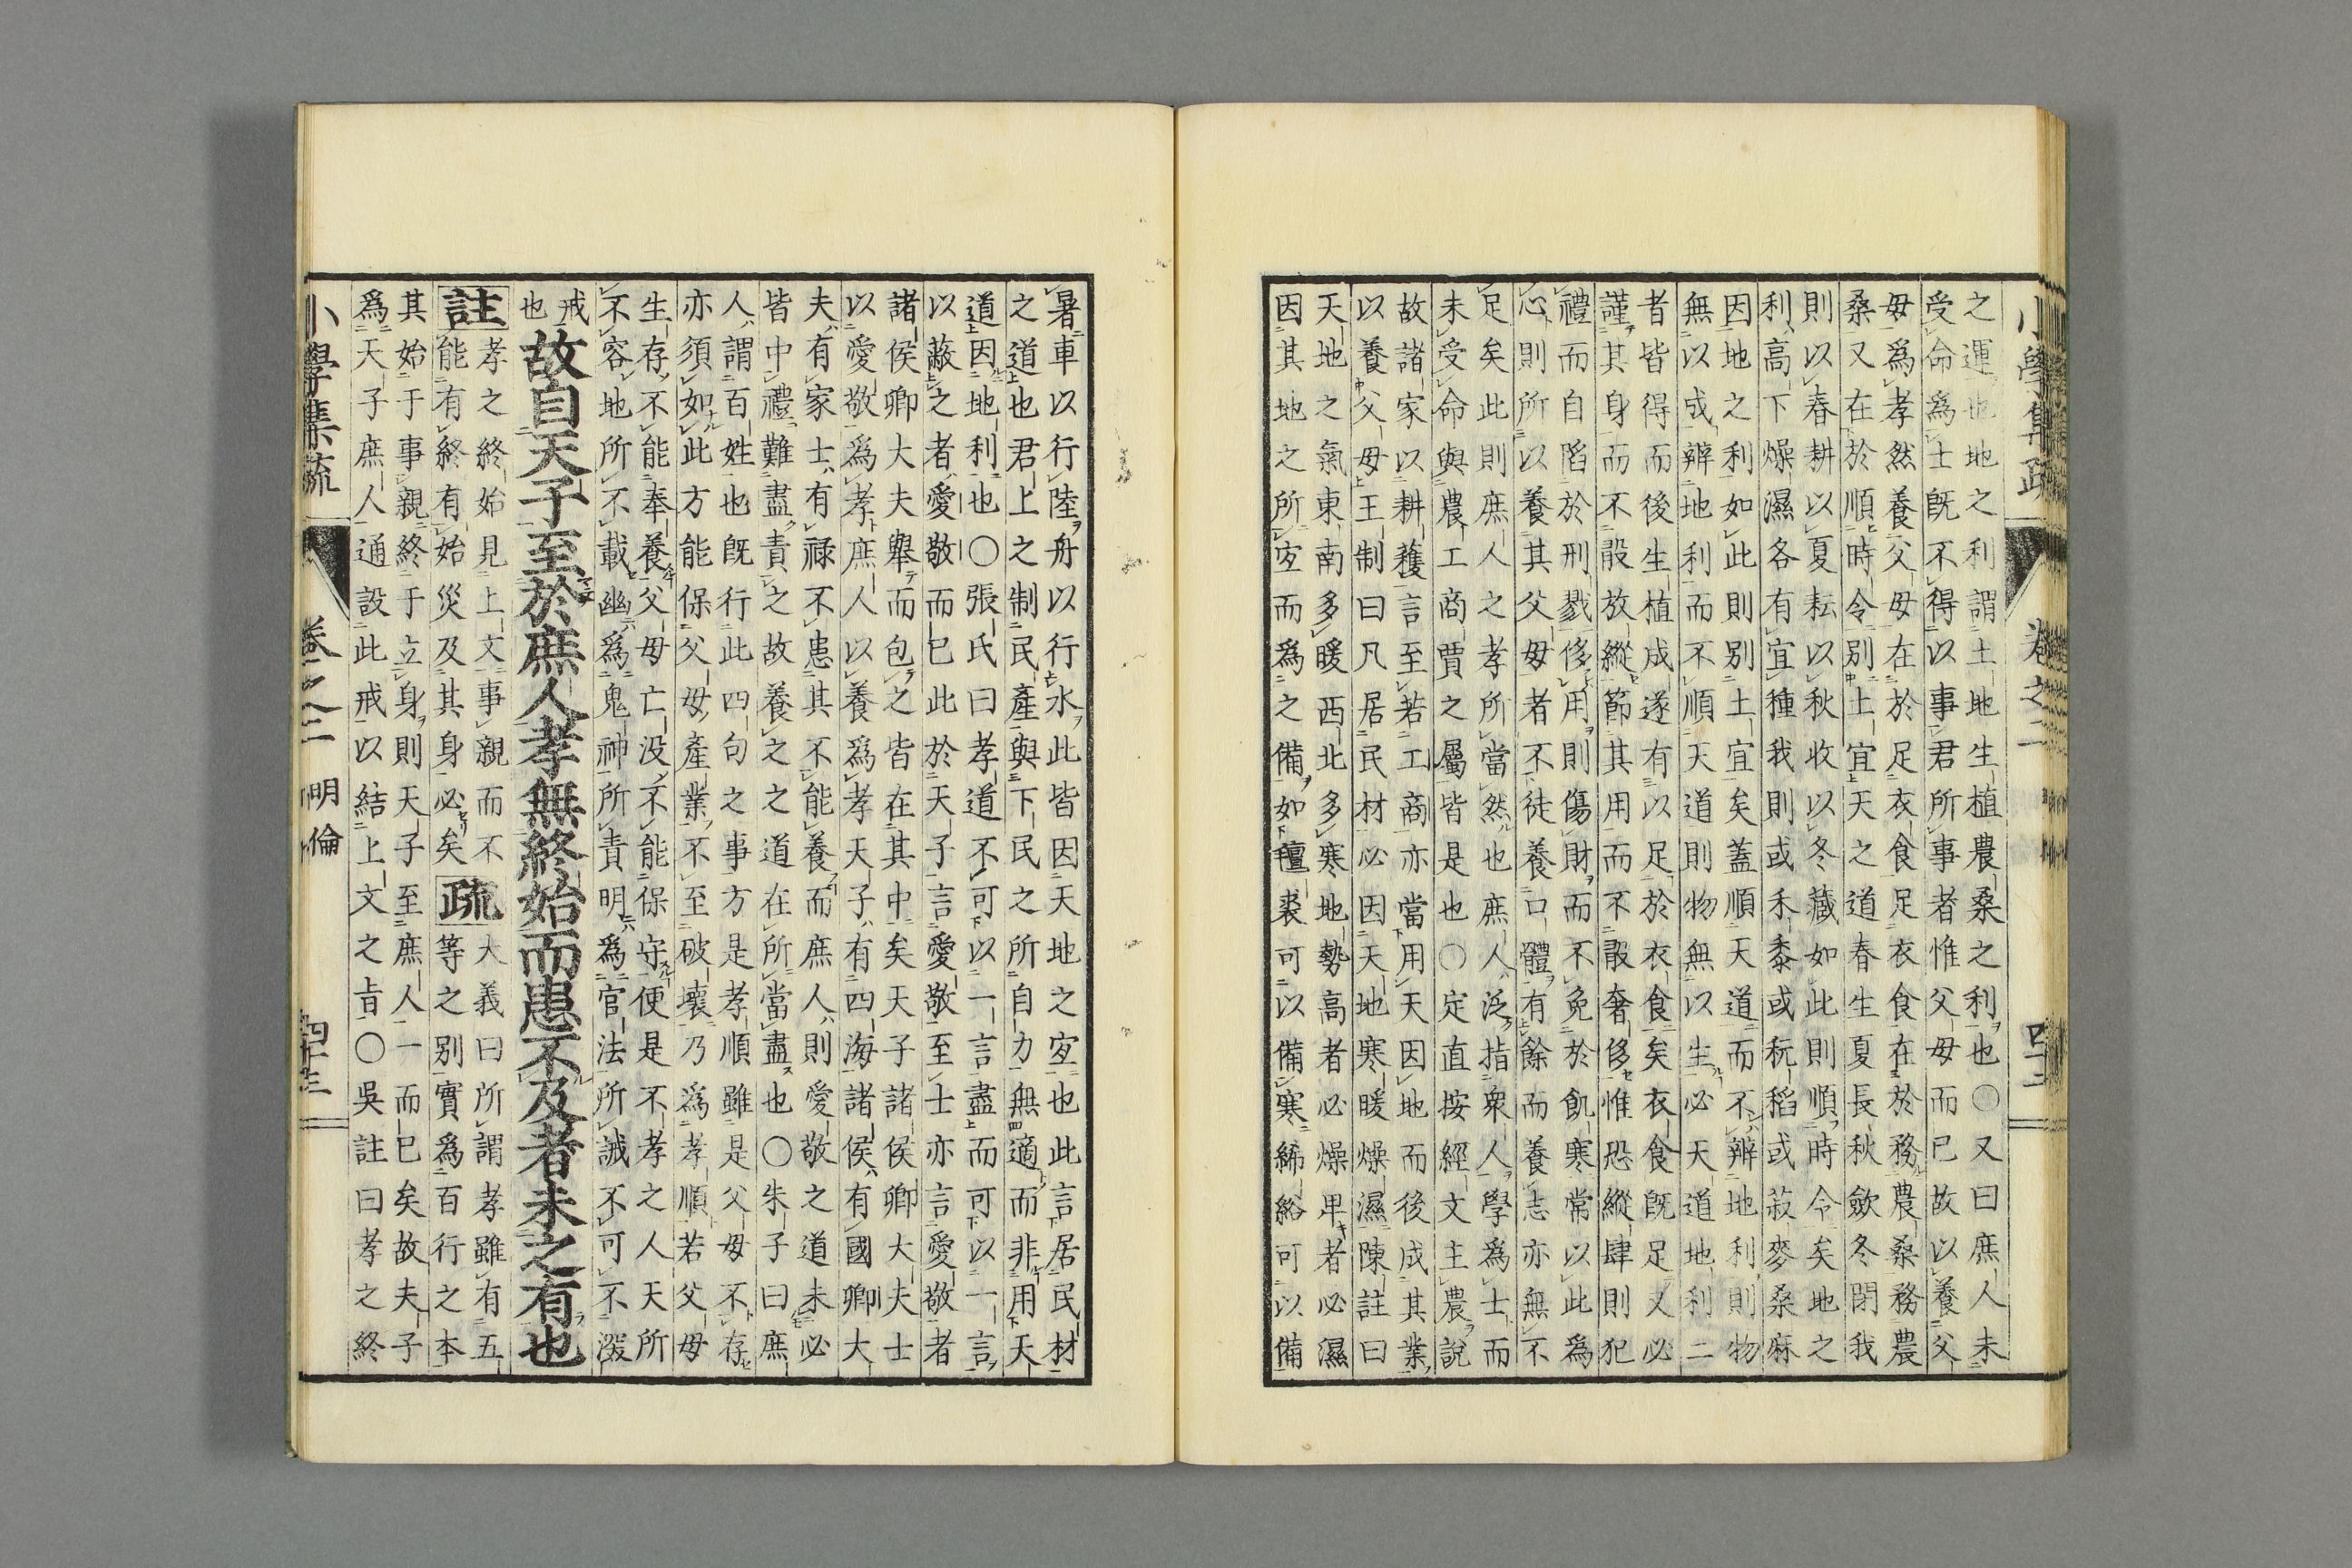 小學集疏
卷之二
四十二
之運也地之利謂土地生植農桑之利也○又曰庶人未
受命爲士旣不得以事君所事者惟父母而已故以養父
母爲孝然養父母在於足衣食足衣食在於務農桑務農
桑又在於順時令別土宜天之道春生夏長秋斂冬閉我
則以春耕以夏耘以秋收以冬藏如此則順時令矣地之
利高下燥濕各有宜種我則或禾黍或秔稻或菽麥桑麻
因地之利如此則別土宜矣蓋順天道而不辨地利則物
無以成辨地利而不順天道則物無以生必天道地利二
者皆得而後生植成遂有以足於衣食矣衣食旣足又必
謹其身而不設放縱節其用而不敢奢侈惟恐縱肆則犯
禮而自陷於刑戮侈用則傷財而不免於飢寒常以此爲
心則所以養其父母者不徒養口體有餘而養志亦無不
足矣此則庶人之孝所當然也庶人泛指衆人學爲士而
未受命與農工商賈之屬皆是也○定直按經文主農說
故諸家以耕穫言至若工商亦當用天因地而後成其業
以養父母王制曰凡居民材必因天地寒暖燥濕陳註曰
天地之氣東南多暖西北多寒地勢高者必燥卑者必濕
因其地之所宜而爲之備如氊裘可以備寒絺綌可以備
暑車以行陸舟以行水此皆因天地之宜也此言居民材
之道也君上之制民產與下民之所自力無適而非用天
道因地利也○張氏曰孝道不可以一言盡而可以一言
以蔽之者愛敬而已此於天子言愛敬至士亦言愛敬者
諸侯卿大夫擧而包之皆在其中矣天子諸侯卿大夫士
以愛敬爲孝庶人以養爲孝天子有四海諸侯有國卿大
夫有家士有祿不患其不能養而庶人則愛敬之道未必
皆中禮難盡責之故養之之道在所當盡也○朱子曰庶
人謂百姓也旣行此四句之事方是孝順雖是父母不存
亦須如此方能保父母產業不至破壞乃爲孝順若父母
生存不能奉養父母亡沒不能保守便是不孝之人天所
不容地所不載幽爲鬼神所責明爲官法所誅不可不深
戒
也
故自天子至於庶人孝無終始而患不及者未之有也
註
孝之終始見上文事親而不
能有終有始災及其身必矣
疏
大義曰所謂孝雖有五
等之別實爲百行之本
其始于事親終于立身則天子至庶人一而已矣故夫子
爲天子庶人通設此戒以結上文之旨○吳註曰孝之終
小學集疏
卷之二
明倫
四十三